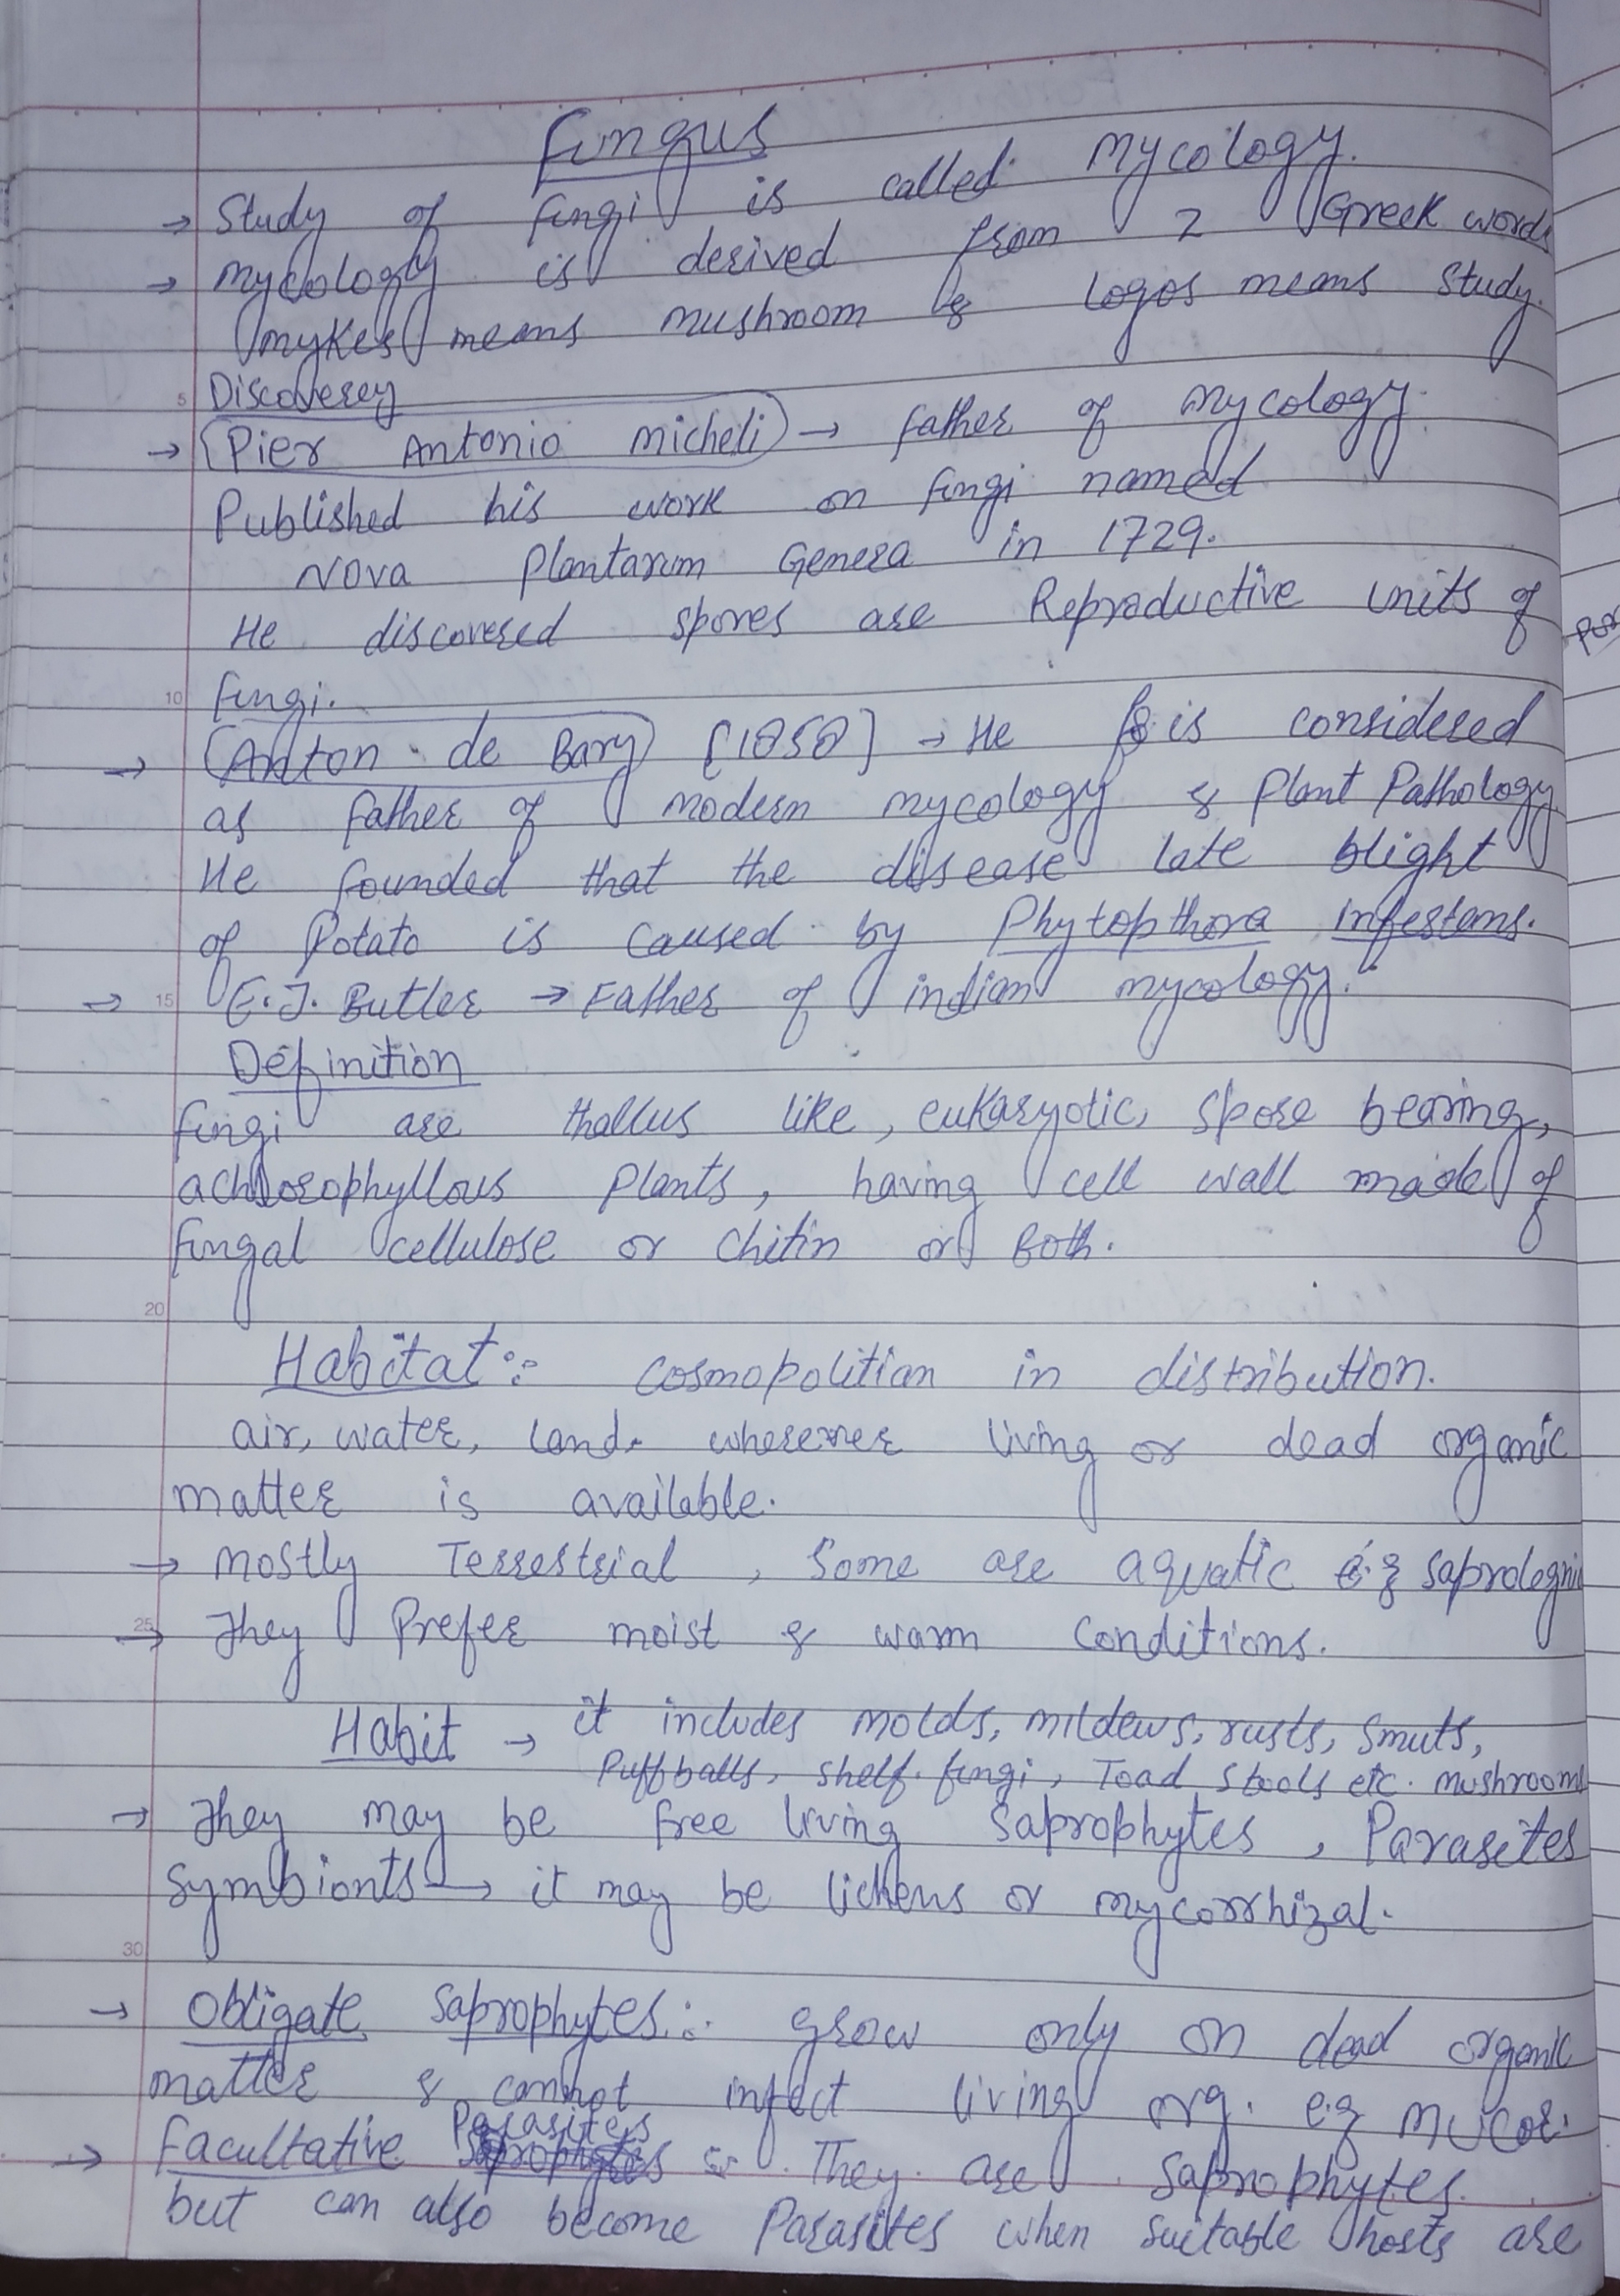 Fungus
→ Study of fungi is called mycology.
→ mycology is derived from 2 Greek words
mykes means mushroom & logos means study.
5 Discoverey
→ Pier Antonio micheli → father of mycology.
Published his work on fungi named
Nova Plantarum Genera in 1729.
He discovered spores are Reproductive units of
10 fungi.
→ Anton de Bary [1858] → He is considered
as father of modern mycology & Plant Pathology
He founded that the disease late blight
of Potato is caused by Phytopthora infestans.
→ 15 E.J. Butler → Father of indian mycology.
Definition
fungi are thallus like, eukaryotic, spore bearing,
achlorophyllous plants, having cell wall made of
fungal cellulose or chitin or Both.
20
Habitat:- cosmopolitian in distribution.
air, water, land. wherever living or dead organic
matter is available.
→ mostly Terrestrial, Some are aquatic e.g saprolegni
25 → They Prefer moist & warm conditions.
Habit → it includes molds, mildews, rusts, smuts,
Puffballs, shelf fungi, Toad stools etc. mushrooms
→ They may be free living saprophytes, Parasites
symbionts → it may be lichens or mycorrhizal.
30
→ Obligate saprophytes:- grow only on dead organic
matter & cannot infect living org. e.g mucor.
→ Facultative Parasites :- They are saprophytes.
but can also become Parasites when suitable hosts are